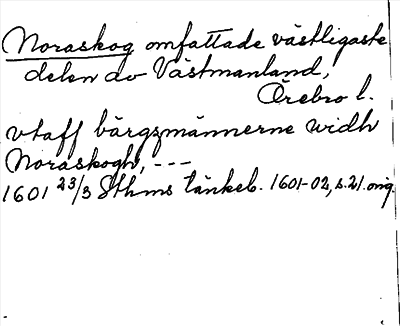 Noraskog omfattade västligaste
delen av Västmanland,
Örebro l.
vtaff bärgzmännerne widh
Noraskogh, ---
1601 23/3 Sthms tänkeb. 1601-02, s.21. orig.